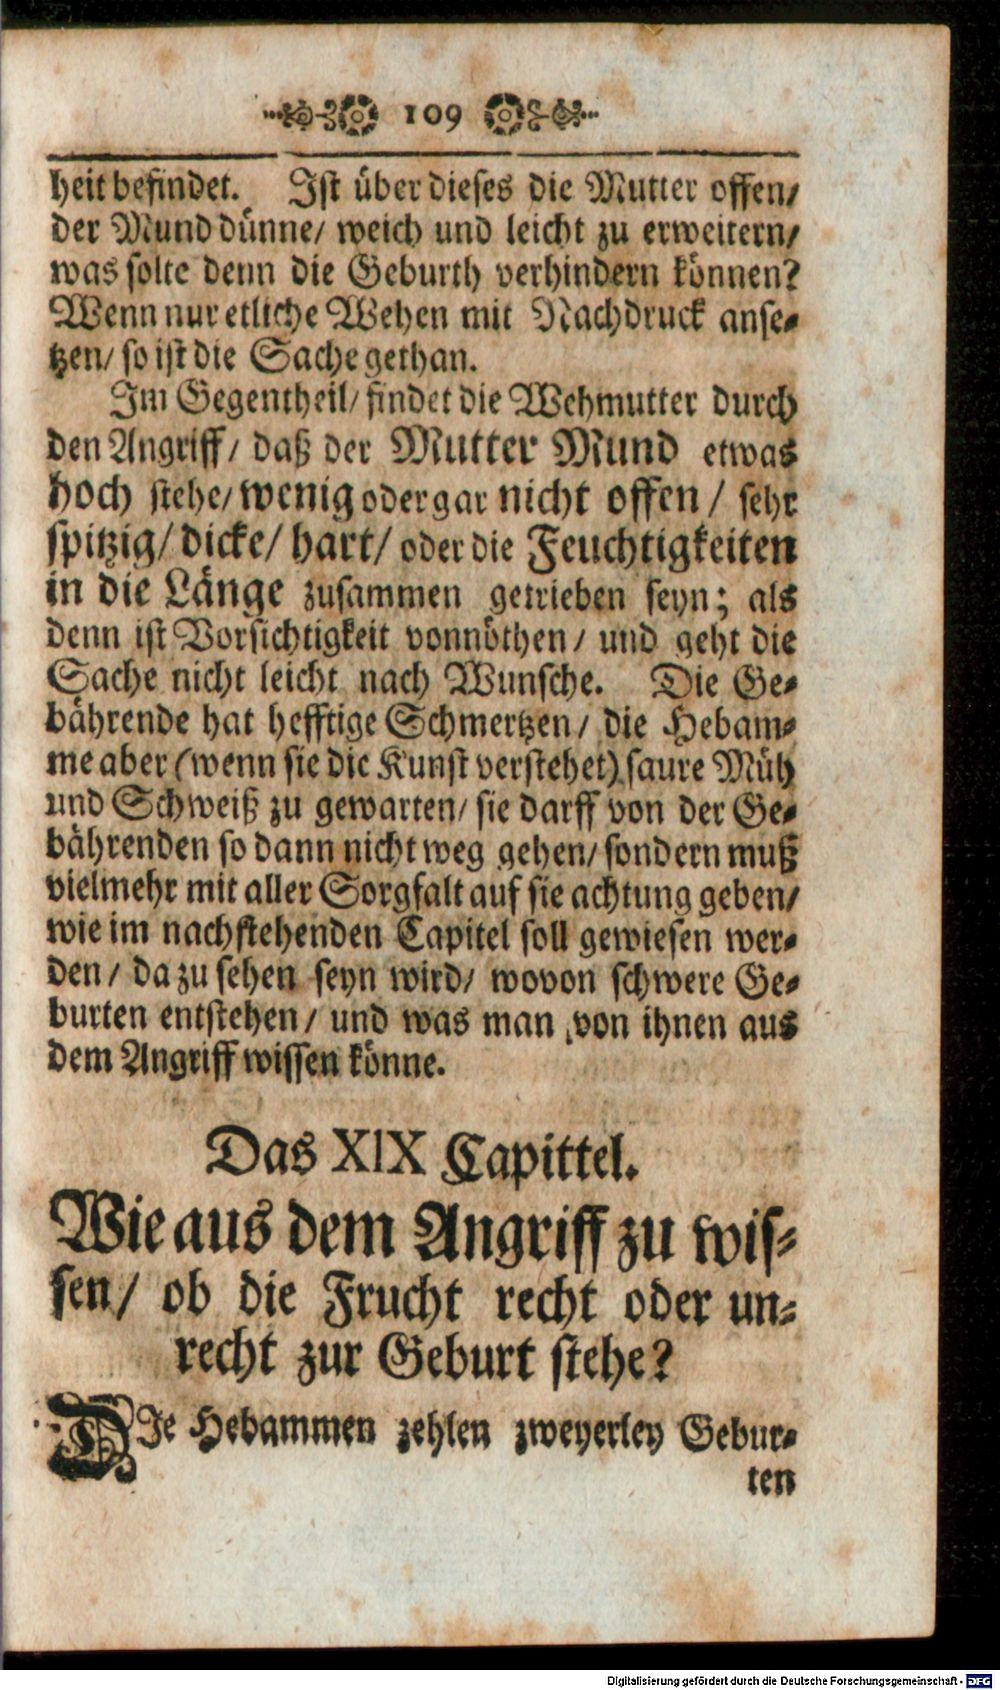 109
heit befindet. Ist über dieses die Mutter offen/
der Mund dünne/ weich und leicht zu erweitern/
was solte denn die Geburth verhindern können?
Wenn nur etliche Wehen mit Nachdruck anse-
tzen/ so ist die Sache gethan.
Im Gegentheil/ findet die Wehmutter durch
den Angriff/ daß der Mutter Mund etwas
hoch stehe/ wenig oder gar nicht offen / sehr
spitzig/ dicke/ hart/ oder die Feuchtigkeiten
in die Länge zusammen getrieben seyn; als
denn ist Vorsichtigkeit vonnöthen/ und geht die
Sache nicht leicht nach Wunsche. Die Ge-
bährende hat hefftige Schmertzen/ die Hebam-
me aber (wenn sie die Kunst verstehet) saure Müh
und Schweiß zu gewarten/ sie darff von der Ge-
bährenden so dann nicht weg gehen/ sondern muß
vielmehr mit aller Sorgfalt auf sie achtung geben/
wie im nachstehenden Capitel soll gewiesen wer-
den/ da zu sehen seyn wird/ wovon schwere Ge-
burten entstehen/ und was man von ihnen aus
dem Angriff wissen könne.
Das XIX Capittel.
Wie aus dem Angriff zu wis-
sen/ ob die Frucht recht oder un-
recht zur Geburt stehe?
DIe Hebammen zehlen zweyerley Gebur-
ten
Digitalisierung gefördert durch die Deutsche Forschungsgemeinschaft - DFG